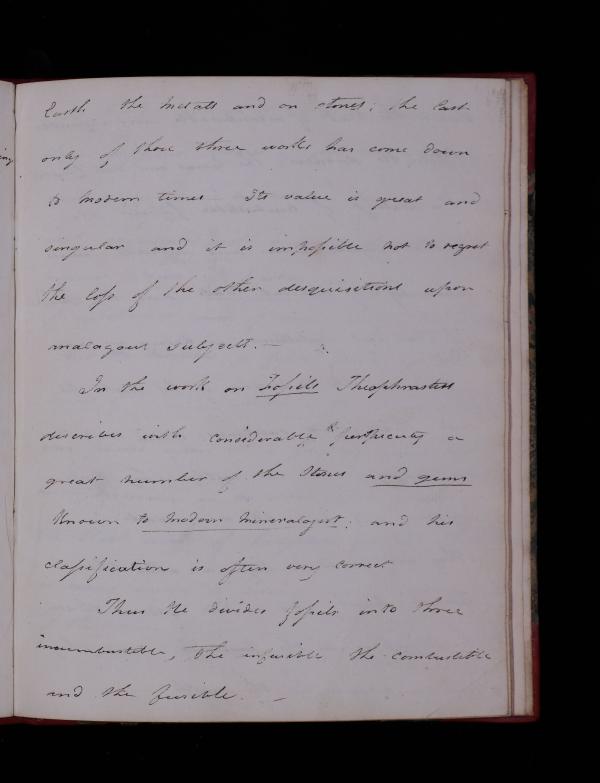 Earth the Metals and on stones; the last
only of these three works has come down
to modern times Its value is great and
singular and it is impossible not to regret
the loss of the other desquisitions upon
analagous subjects. —
In the work on Fossils Theophrastus
describes with considerable perspicuity a
great number of the Stones and gems
Known to modern mineralogist; and his
classification is often very correct
Thus He divides fossils into three
incombustible, The infusible the combustible
and the fusible. —